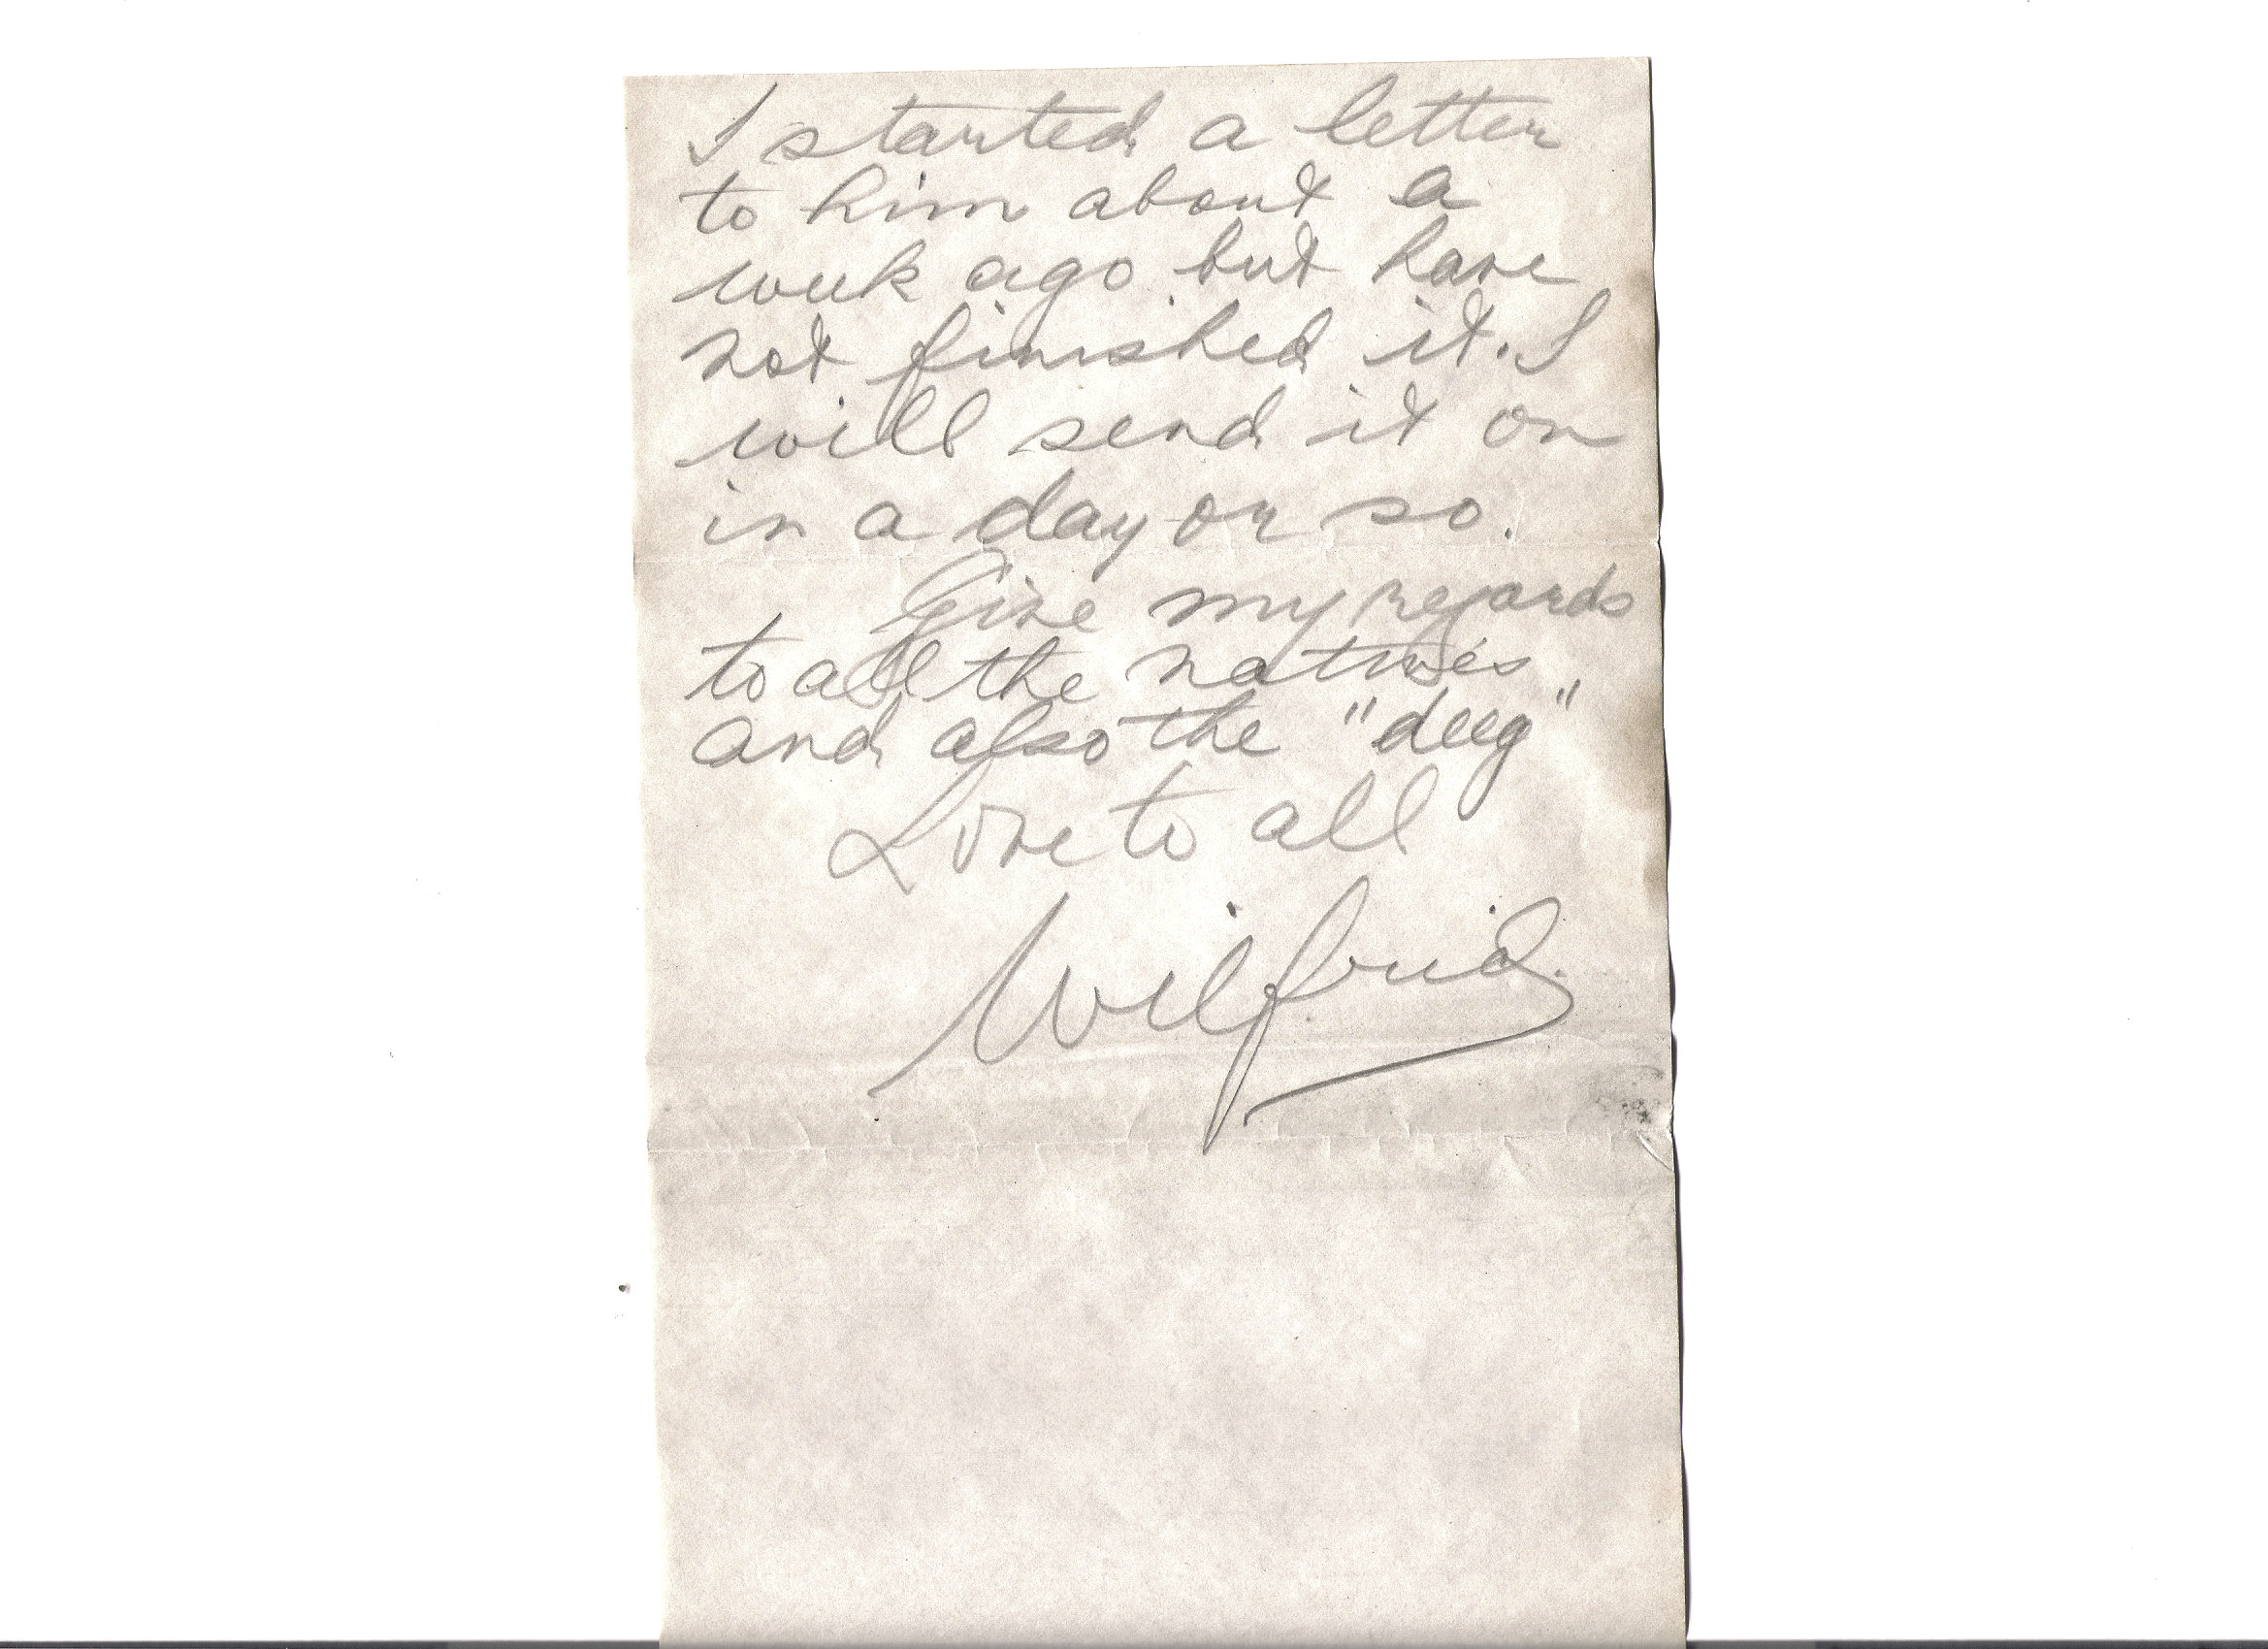 I started a letter
to him about a
week ago but have
not finished it. I
will send it on
in a day or so.
Give my regards
to all the natives
and also the "deeg"
Love to all
Wilfrid.